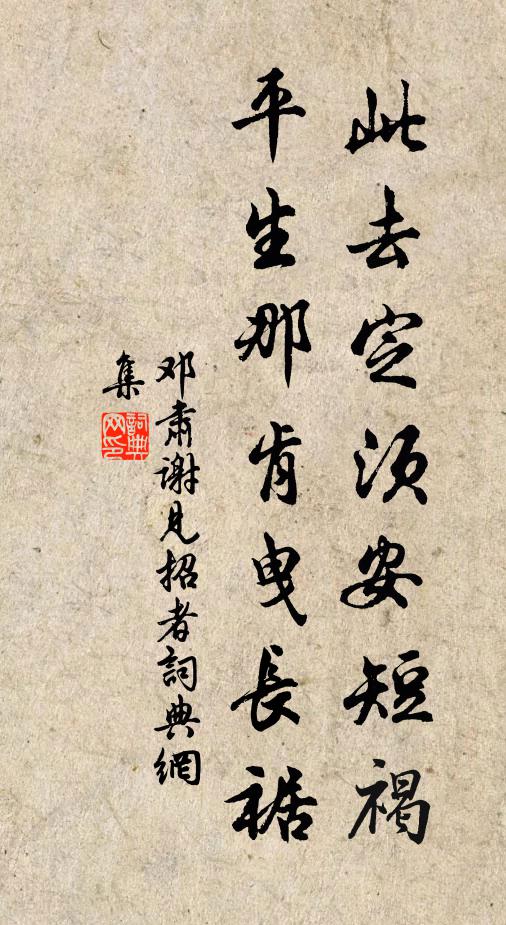 此去定须安短褐
平生那肯曳長裾
邓肃谢见招者詞典網
集
詞典网印